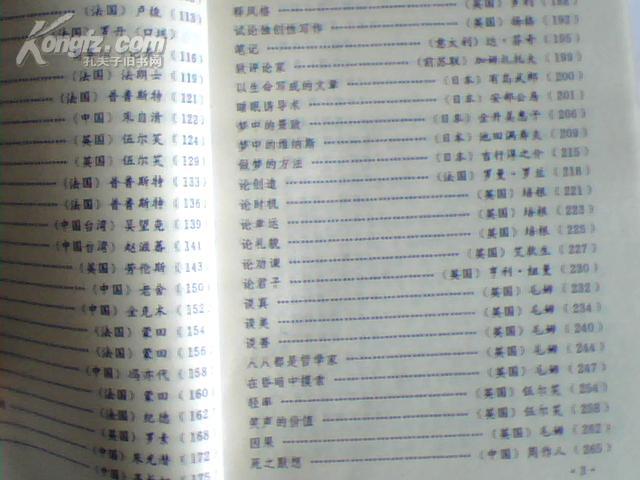 Kongfz.com
孔夫子旧书网
（法国）卢梭（113）
（法国）罗丹（口述）
（116）
（法国）法朗士（119）
（法国）普鲁斯特（121）
（中国）朱自清（122）
（英国）伍尔芙（124）
（英国）伍尔芙（129）
（法国）普鲁斯特（133）
（法国）普鲁斯特（136）
（中国台湾）吴望尧（139）
（中国台湾）赵滋蕃（141）
（英国）劳伦斯（143）
（中国）老舍（150）
（中国）金克木（152）
（法国）蒙田（154）
（法国）蒙田（156）
（中国）冯亦代（158）
（法国）蒙田（160）
（法国）纪德（162）
（英国）罗素（168）
（中国）朱光潜（172）
（175）
释风格（英国）（182）
试论独创性写作（英国）杨格（192）
笔记（意大利）达·芬奇（195）
致评论家（前苏联）加姆扎托夫（199）
以生命写成的文章（日本）有岛武郎（200）
睡眠诱导术（日本）安部公房（201）
梦中的景致（日本）金井美惠子（206）
梦中的维纳斯（日本）池田满寿夫（209）
做梦的方法（日本）吉行淳之介（215）
论创造（法国）罗曼·罗兰（218）
论时机（英国）培根（221）
论幸运（英国）培根（223）
论礼貌（英国）培根（225）
论劝谏（英国）艾狄生（227）
论君子（英国）亨利·纽曼（230）
谈真（英国）毛姆（232）
谈美（英国）毛姆（234）
谈善（英国）毛姆（240）
人人都是哲学家（英国）毛姆（244）
在昏暗中摸索（英国）毛姆（247）
轻率（英国）伍尔芙（254）
笑声的价值（英国）伍尔芙（258）
因果（英国）毛姆（262）
死之默想（中国）周作人（265）
·3·